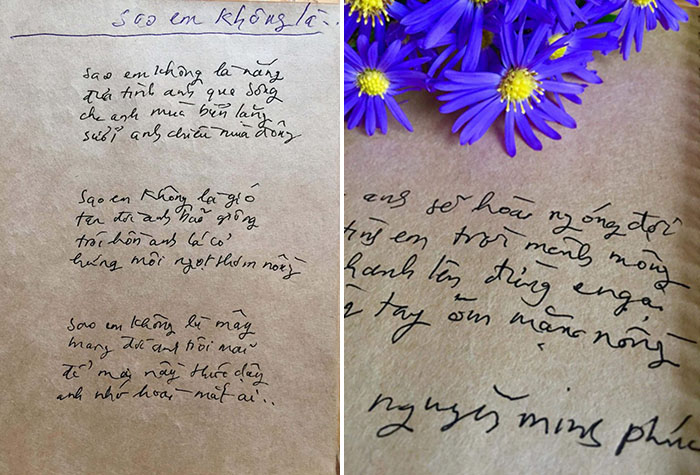 Sao em không là...
Sao em không là nắng
đưa tình anh qua sông
che anh mùa băng lặng
sưởi anh chiều mùa đông
Sao em không là gió
tan đời anh bão giông
trôi hồn anh lá cỏ
hứng môi ngọt thơm nồng
Sao em không là mây
mang đời anh trôi mãi
để mai này thức dậy
anh nhớ hoài mắt ai..
anh sẽ hoài ngóng đợi
tình em trời mênh mông
nhanh lên đừng e ngại
tay ôm mặn nồng
nguyễn minh phúc